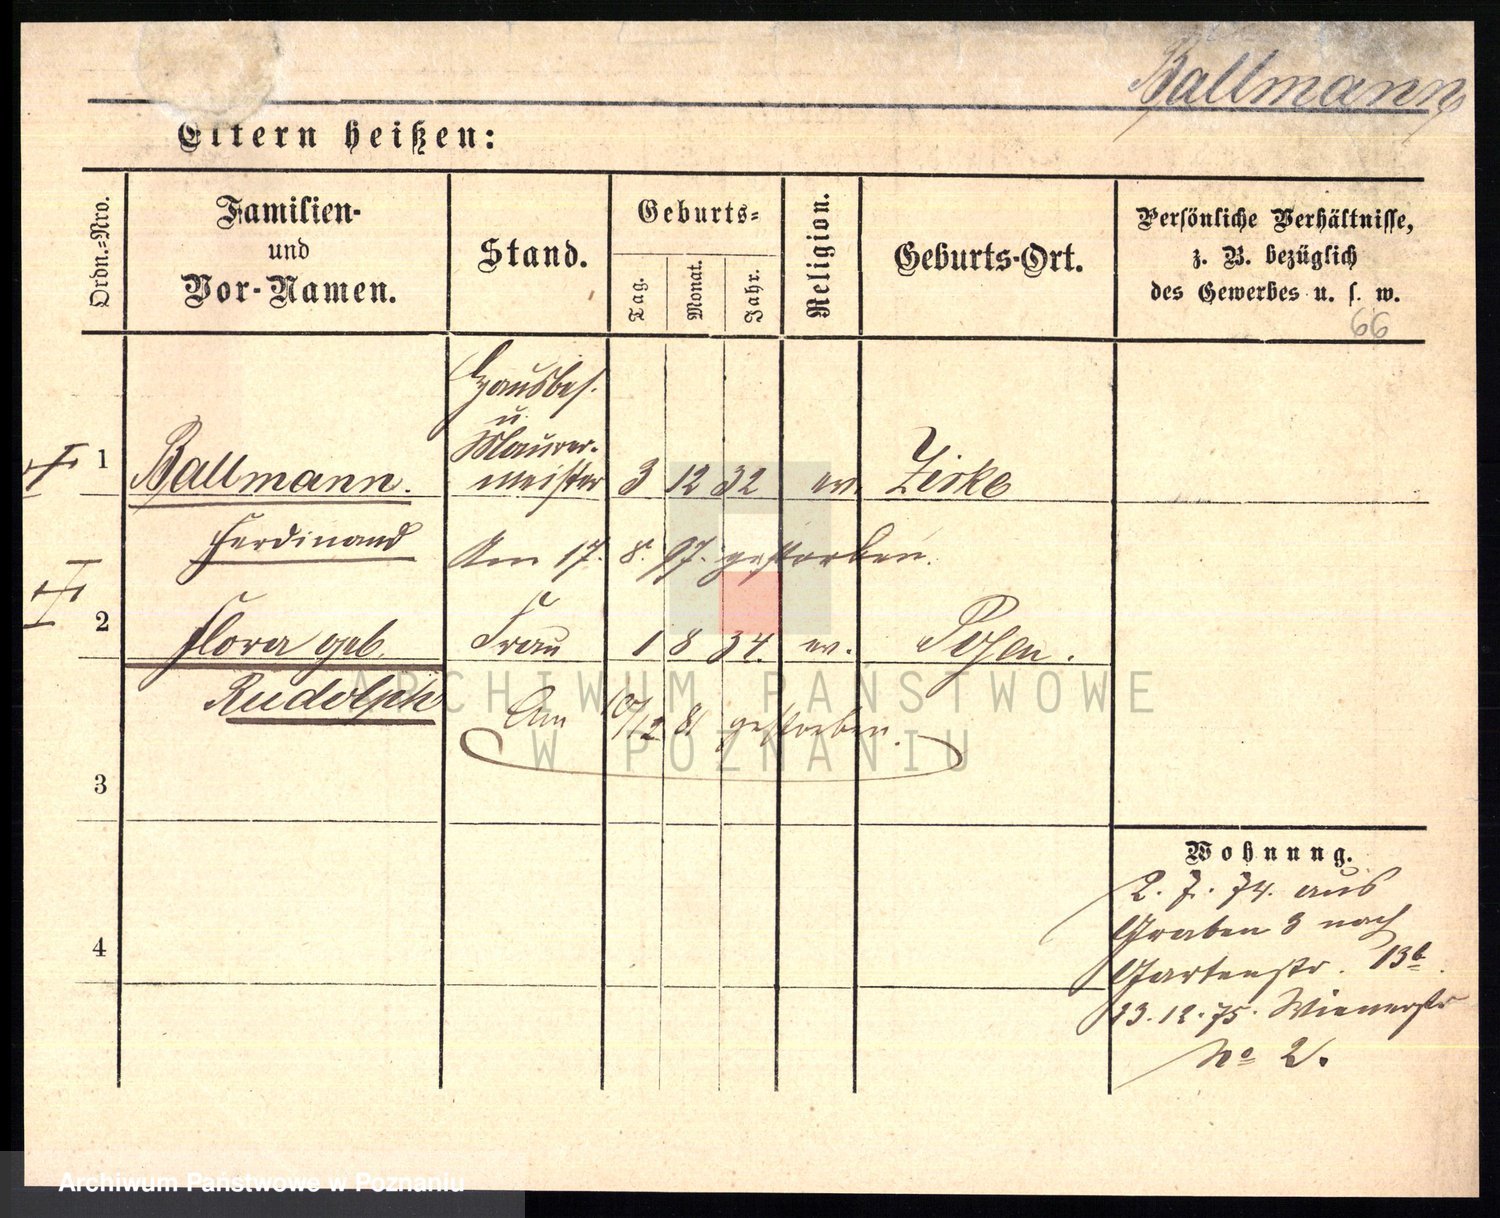 Ballmann
Eltern heißen:
Ordn.-Nro.
Familien-
und
Vor-Namen.
Stand.
Geburts-
Tag.
Monat.
Jahr.
Religion.
Geburts-Ort.
Persönliche Verhältnisse,
z. B. bezüglich
des Gewerbes u. s. w.
66
Hausbes.
u.
Maurer-
1 Ballmann. meister 3 12 32 ev. Zirke
Ferdinand Am 17. 8. 97. gestorben.
2 Flora geb. Frau 1 8 34. ev. Posen.
Rudolph Am 10/12 81 gestorben.
3
Wohnung.
2. 7. 74. aus
Graben 3 nach
4 Gartenstr. 13b
23. 12. 75. Wienerstr
No 2.
ARCHIWUM PAŃSTWOWE
W POZNANIU
Archiwum Państwowe w Poznaniu